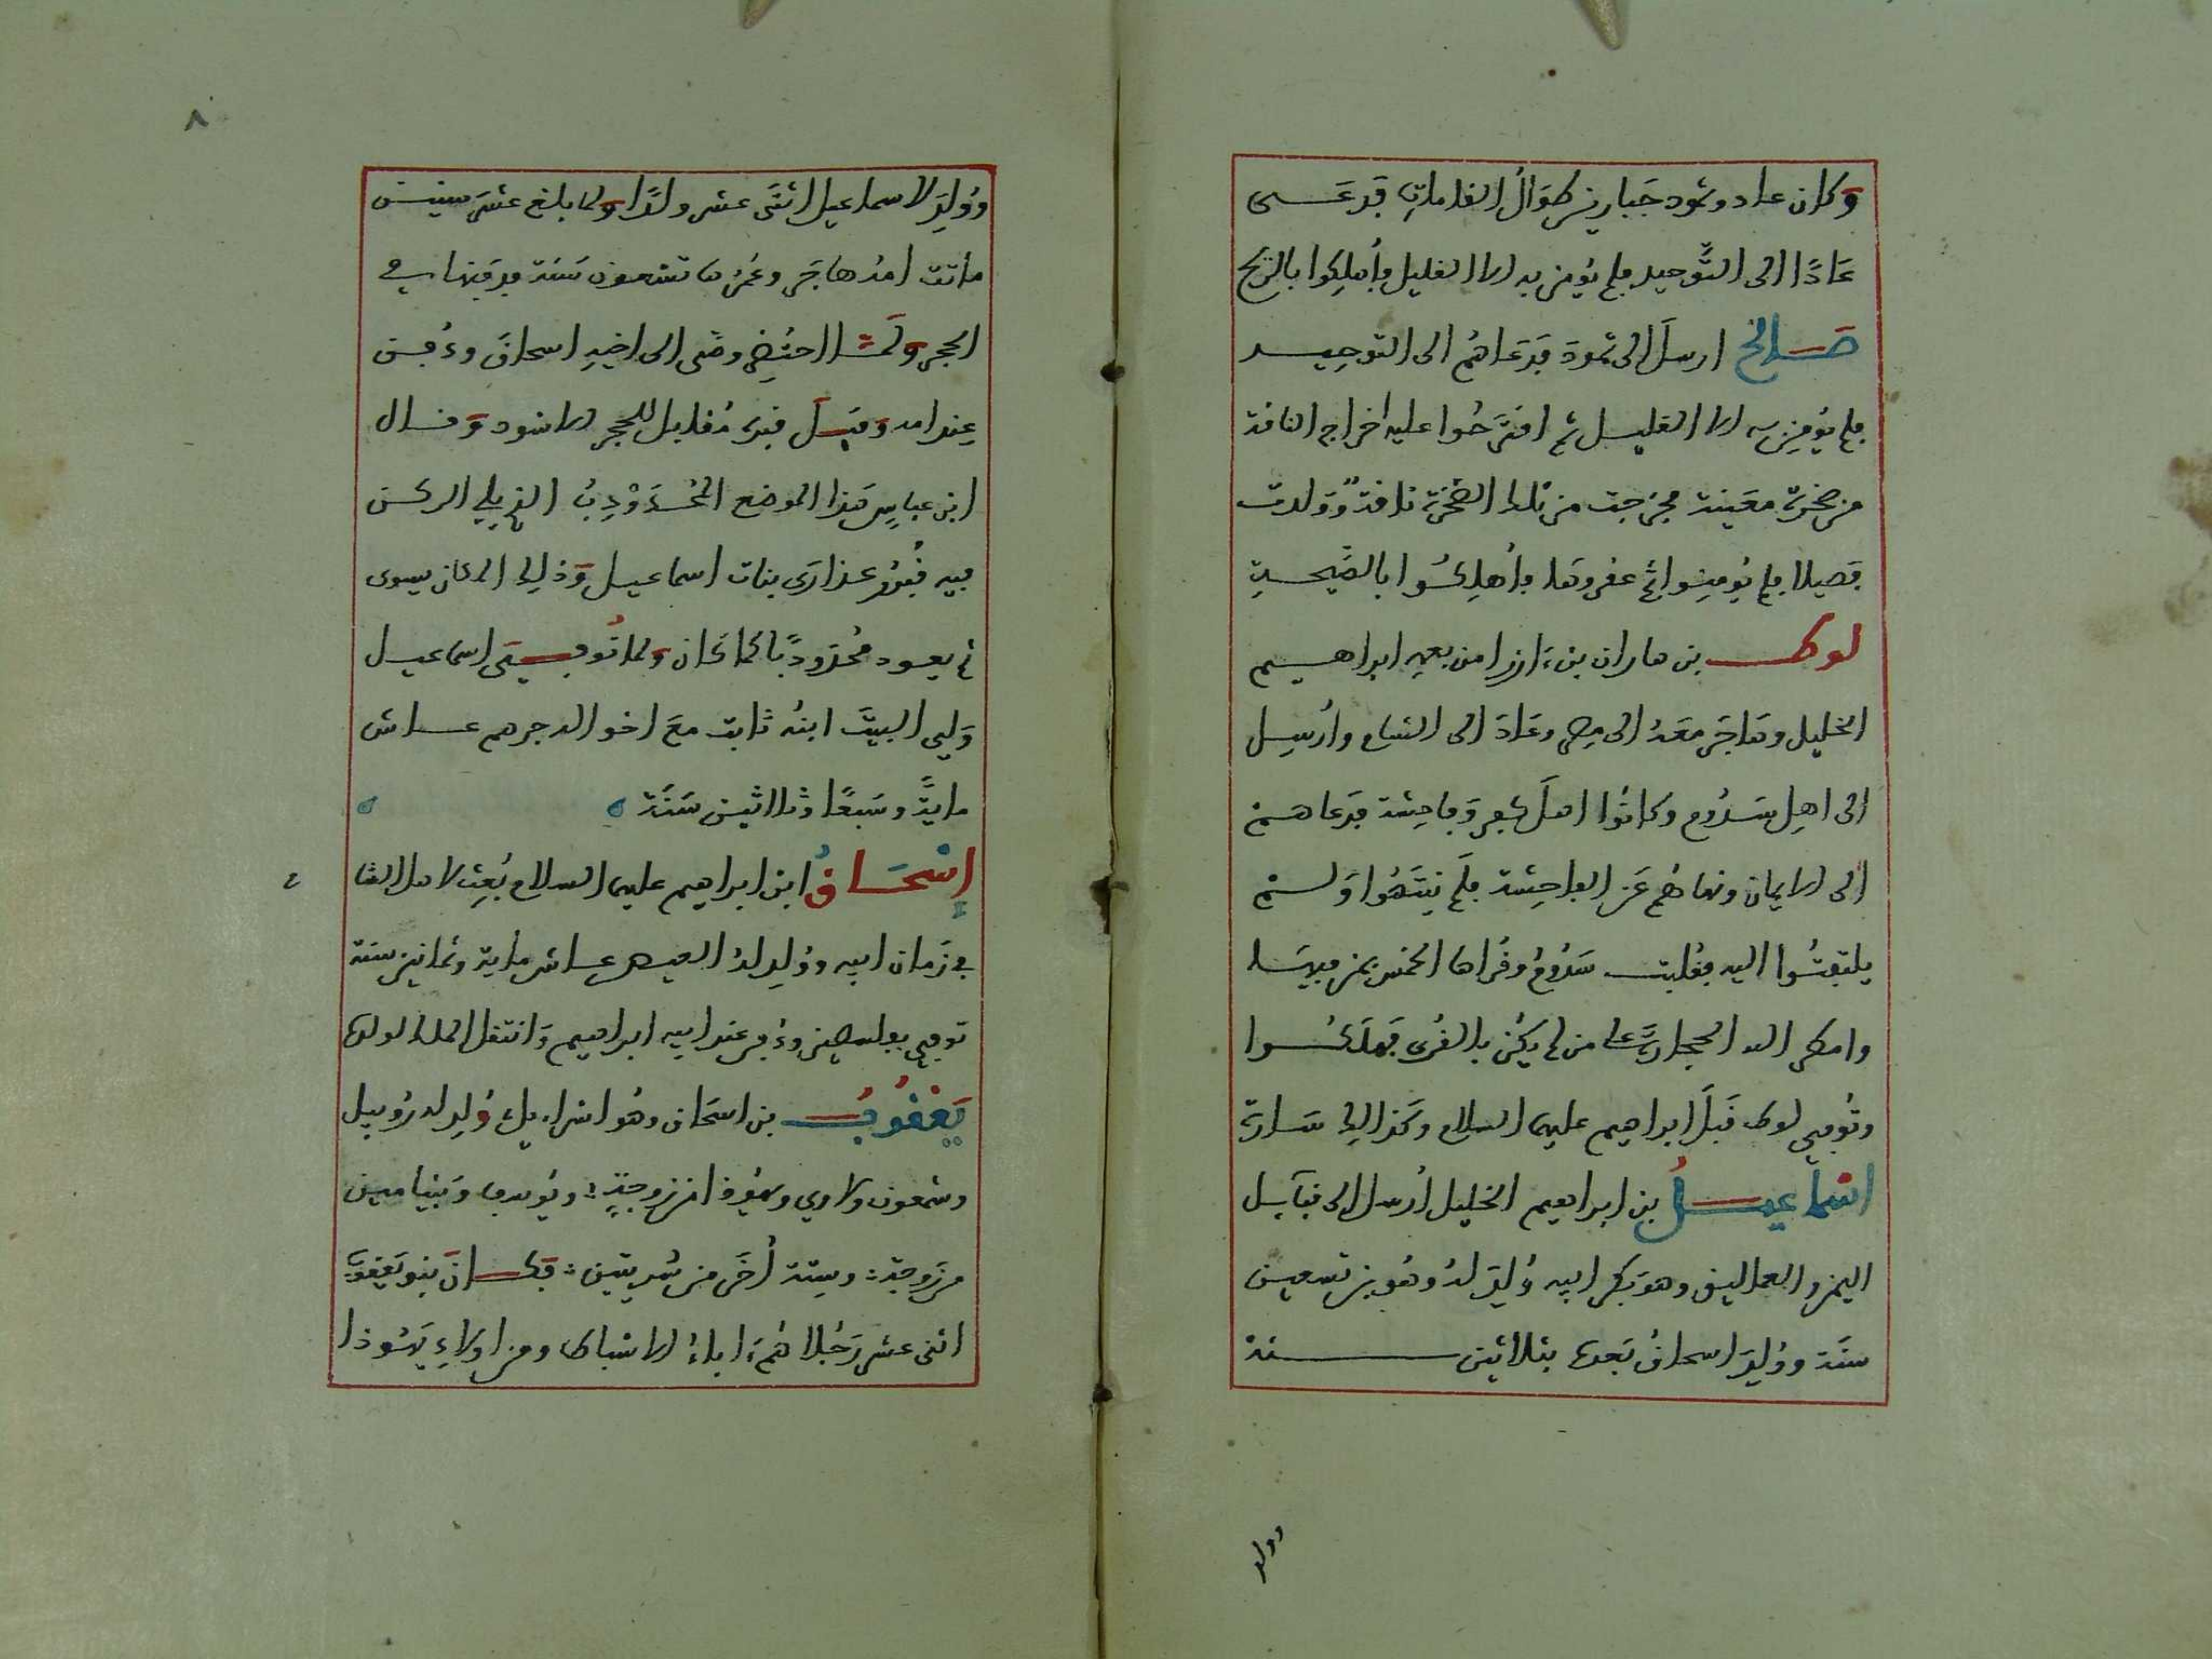 وكان عاد وثمود جبارين طوال القامات فدعى
عادا الى التوحيد فلم يؤمن به الا القليل فأهلكوا بالريح
صالح ارسل الى ثمود فدعاهم الى التوحيد
فلم يؤمن به الا القليل ثم اقترحوا عليه اخراج الناقة
من صخرة معينة فخرجت من تلك الصخرة ناقة وولدت
فصيلا فلم يومنوا ثم عقروها فأهلكوا بالصيحة
لوط بن هاران بن ءازر امن بعمه ابراهيم
الخليل وهاجر معه الى مصر وعاد الى الشام وارسل
الى اهل سدوم وكانوا اهل كفر وفاحشة فدعاهم
الى الايمان ونهاهم عن الفاحشة فلم ينتهوا ولم
يلتفتوا اليه فقلبت سدوم وقراها الخمس بمن فيها
وامطر الله الحجارة على من لم يكن بالقرى فهلكوا
وتوفي لوط قبل ابراهيم عليهما السلام وكذالك سارة
اسماعيل بن ابراهيم الخليل أرسل الى قبآيل
اليمن والعماليق وهو بكر ابيه ولد له وهو بن تسعين
سنة وولد اسحاق بعده بثلاثين سنة
وولد
٨
وولد لاسماعيل اثنى عشر ولدا ولما بلغ عشر سنين
ماتت امه هاجر وعمرها تسعون سنة فدفنها في
الحجر ولما احتضر وصى الى اخيه اسحاق ودفن
عند امه وقيل قبره مقابل للحجر الاسود وقال
ابن عباس هذا الموضع المحدودب الذي يلي الركن
فيه قبور عذارى بنات اسماعيل وذلك المكان يسوى
ثم يعود محدودبا كما كان ولما توفي اسماعيل
ولي البيت ابنه ثابت مع اخواله جرهم عاش
ماية وسبعا وثلاثين سنة
إسحاق ابن ابراهيم عليهما السلام بعث لاهل الشا م
في زمان ابيه وولد له العيص عاش ماية وثمانين سنة
توفي بفلسطين ودفن عند ابيه ابراهيم وانتقل الملك لولده
يعقوب بن اسحاق وهو اسراءيل ولد له روبيل
وشمعون ولاوي ويهوذا من زوجة ويوسف وبنيامين
من زوجة وستة أخر من سريتين فكان بنو يعقوب
اثنى عشر رجلا هم ءاباء الاسباط ومن اولاد يهوذا